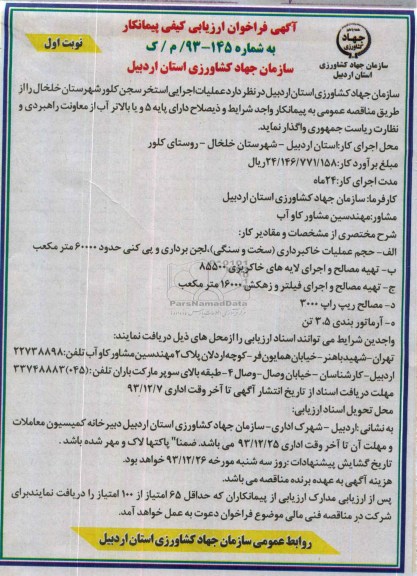 آگهی فراخوان ارزیابی کیفی پیمانکار
به شماره ۱۴۵-۹۳/م/ک
سازمان جهاد کشاورزی استان اردبیل
نوبت اول
جهاد
کشاورزی
سازمان جهاد کشاورزی
استان اردبیل
سازمان جهاد کشاورزی استان اردبیل در نظر دارد عملیات اجرایی استخر سجن کلور شهرستان خلخال را از
طریق مناقصه عمومی به پیمانکار واجد شرایط و ذیصلاح دارای پایه ۵ و یا بالاتر آب از معاونت راهبردی و
نظارت ریاست جمهوری واگذار نماید.
محل اجرای کار: استان اردبیل - شهرستان خلخال - روستای کلور
مبلغ برآورد کار: ۲۴/۱۴۶/۷۷۱/۱۵۸ ریال
مدت اجرای کار: ۲۴ماه
کارفرما: سازمان جهاد کشاورزی استان اردبیل
مشاور: مهندسین مشاور کاو آب
شرح مختصری از مشخصات و مقادیر کار:
الف - حجم عملیات خاکبرداری (سخت و سنگی)، لجن برداری و پی کنی حدود ۶۰۰۰۰ متر مکعب
ب - تهیه مصالح و اجرای لایه های خاکریزی ۸۵۵۰۰
ج - تهیه مصالح و اجرای فیلتر و زهکش ۱۶۰۰۰ متر مکعب
ParsNamadData
د - مصالح ریپ راپ ۳۰۰۰
ه - آرماتور بندی ۳.۵ تن
واجدین شرایط می توانند اسناد ارزیابی را از محل های ذیل دریافت نمایند:
تهران - شهید باهنر - خیابان همایون فر - کوچه اردلان پلاک ۲ مهندسین مشاور کاو آب تلفن: ۲۲۷۳۸۸۹۸
اردبیل - کارشناسان - خیابان وصال - وصال ۴ - طبقه بالای سوپر مارکت باران تلفن: (۰۴۵) ۳۳۷۴۸۸۸۳
مهلت دریافت اسناد از تاریخ انتشار آگهی تا آخر وقت اداری ۹۳/۱۲/۷
محل تحویل اسناد ارزیابی:
به نشانی: اردبیل - شهرک اداری - سازمان جهاد کشاورزی استان اردبیل دبیرخانه کمیسیون معاملات
و مهلت آن تا آخر وقت اداری ۹۳/۱۲/۲۵ می باشد. ضمنا" پاکتها لاک و مهر شده باشد .
تاریخ گشایش پیشنهادات : روز سه شنبه مورخه ۹۳/۱۲/۲۶ خواهد بود.
هزینه آگهی به عهده برنده مناقصه می باشد.
پس از ارزیابی مدارک ارزیابی از پیمانکاران که حداقل ۶۵ امتیاز از ۱۰۰ امتیاز را دریافت نمایند برای
شرکت در مناقصه فنی مالی موضوع فراخوان دعوت به عمل خواهد آمد.
روابط عمومی سازمان جهاد کشاورزی استان اردبیل